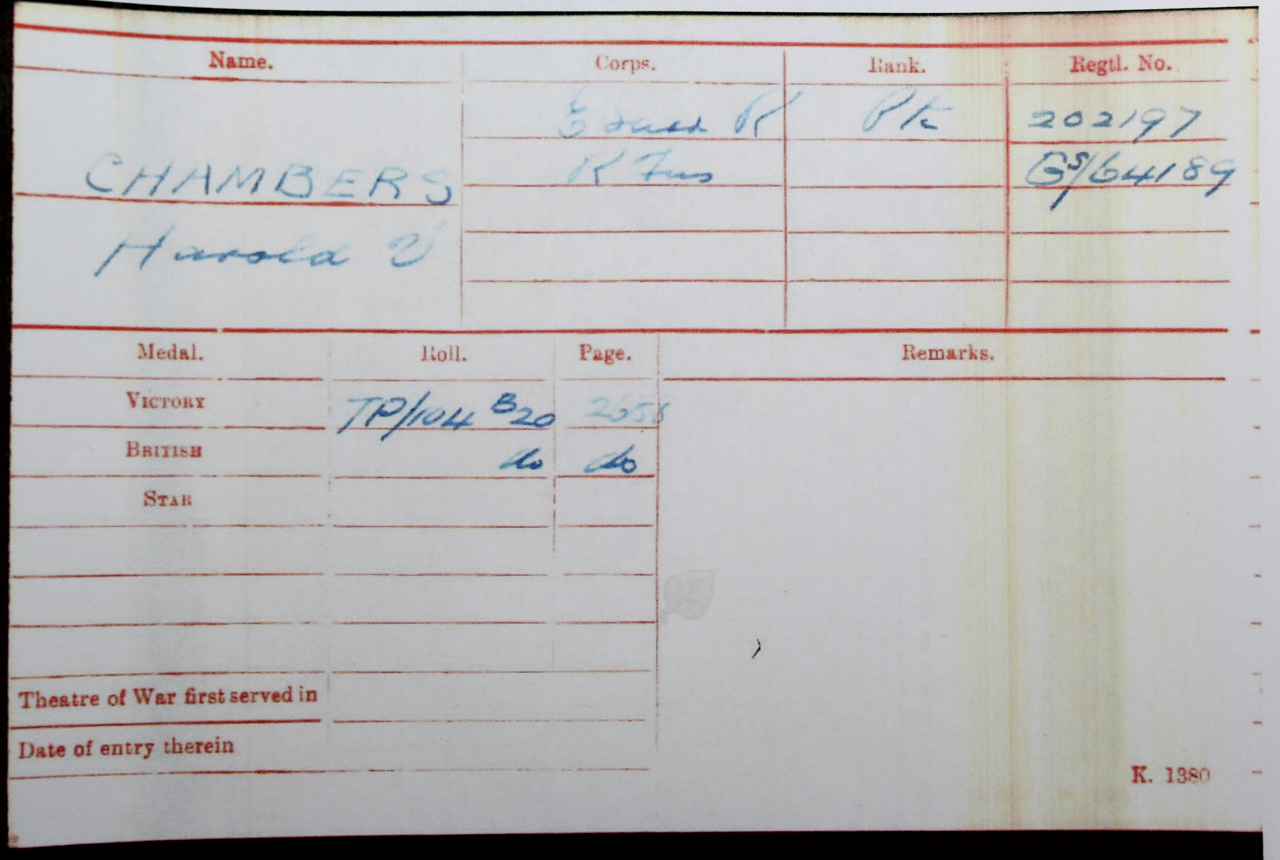 Name. Corps. Rank. Regtl. No.
R Pte 202197
CHAMBERS R Fus GS/64189
Harold V
Medal. Roll. Page. Remarks.
VICTORY TP/104 B20
BRITISH do do
STAR
Theatre of War first served in
Date of entry therein
K. 1380